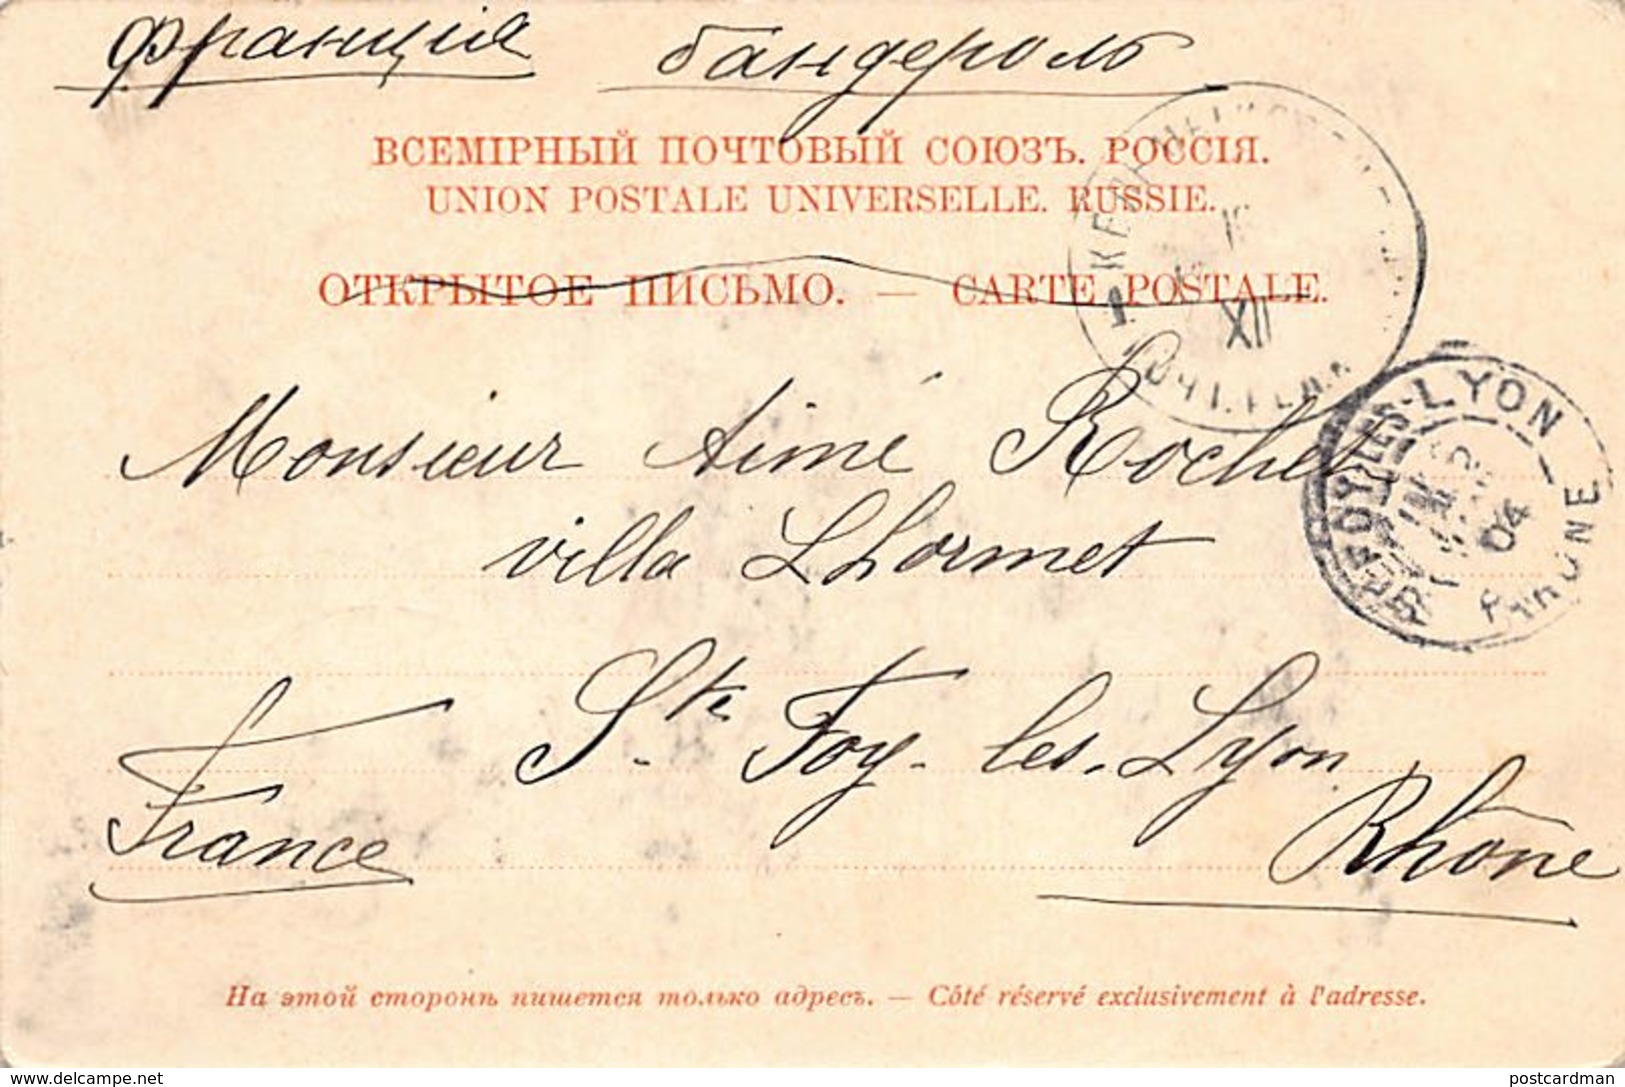 Франція бандероль
ВСЕМІРНЫЙ ПОЧТОВЫЙ СОЮЗЪ. РОССІЯ.
UNION POSTALE UNIVERSELLE. RUSSIE.
ОТКРЫТОЕ ПИСЬМО. — CARTE POSTALE.
XII
Monsieur Aimé Rochet
STE FOY-LES-LYON
04
RHONE
villa Lhormet
Ste Foy-les-Lyon
France
Rhône
На этой сторонѣ пишется только адресъ. — Côté réservé exclusivement à l'adresse.
www.delcampe.net
postcardman